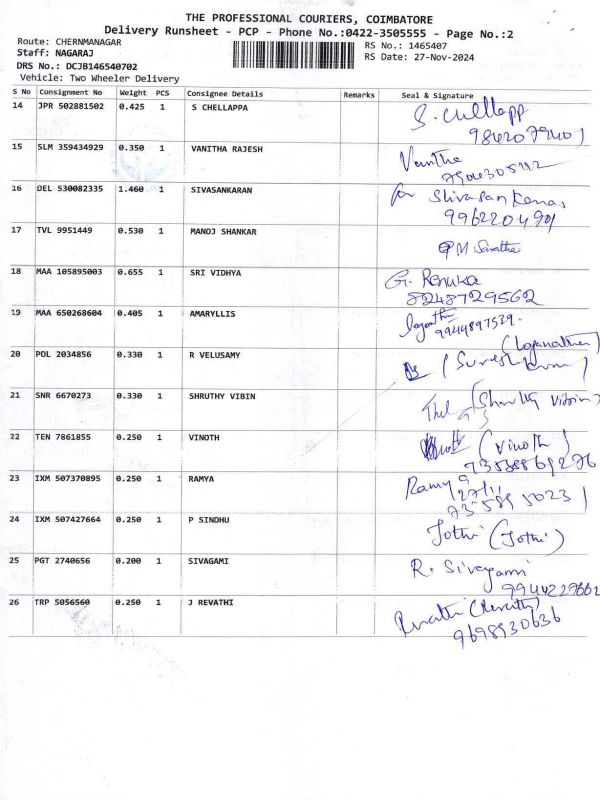 THE PROFESSIONAL COURIERS, COIMBATORE
Delivery Runsheet - PCP - Phone No.:0422-3505555 - Page No.:2
Route: CHERNMANAGAR
Staff: NAGARAJ
RS No.: 1465407
DRS No.: DCJB146540702
RS Date: 27-Nov-2024
Vehicle: Two Wheeler Delivery
S No Consignment No Weight PCS Consignee Details Remarks Seal & Signature
14 JPR 502881502 0.425 1 S CHELLAPPA S. Chellapp
15 SLM 359434929 0.350 1 VANITHA RAJESH Vanitha
16 DEL 530082335 1.460 1 SIVASANKARAN for Shivasankaran
9962204901
17 TVL 9951449 0.530 1 MANOJ SHANKAR
18 MAA 105895003 0.655 1 SRI VIDHYA G. Renuka
8248729562
19 MAA 650268604 0.405 1 AMARYLLIS
9944897539.
(Loganathan)
20 POL 2034856 0.330 1 R VELUSAMY (Sureshkumar)
21 SNR 6670273 0.330 1 SHRUTHY VIBIN (Shruthy Vibin)
22 TEN 7861855 0.250 1 VINOTH (Vinoth)
23 IXM 507370895 0.250 1 RAMYA Ramya
27/11
24 IXM 507427664 0.250 1 P SINDHU Jothi (Jothi)
25 PGT 2740656 0.200 1 SIVAGAMI R. Sivagami
26 TRP 5056560 0.250 1 J REVATHI Revathi (Revathy)
9698930636